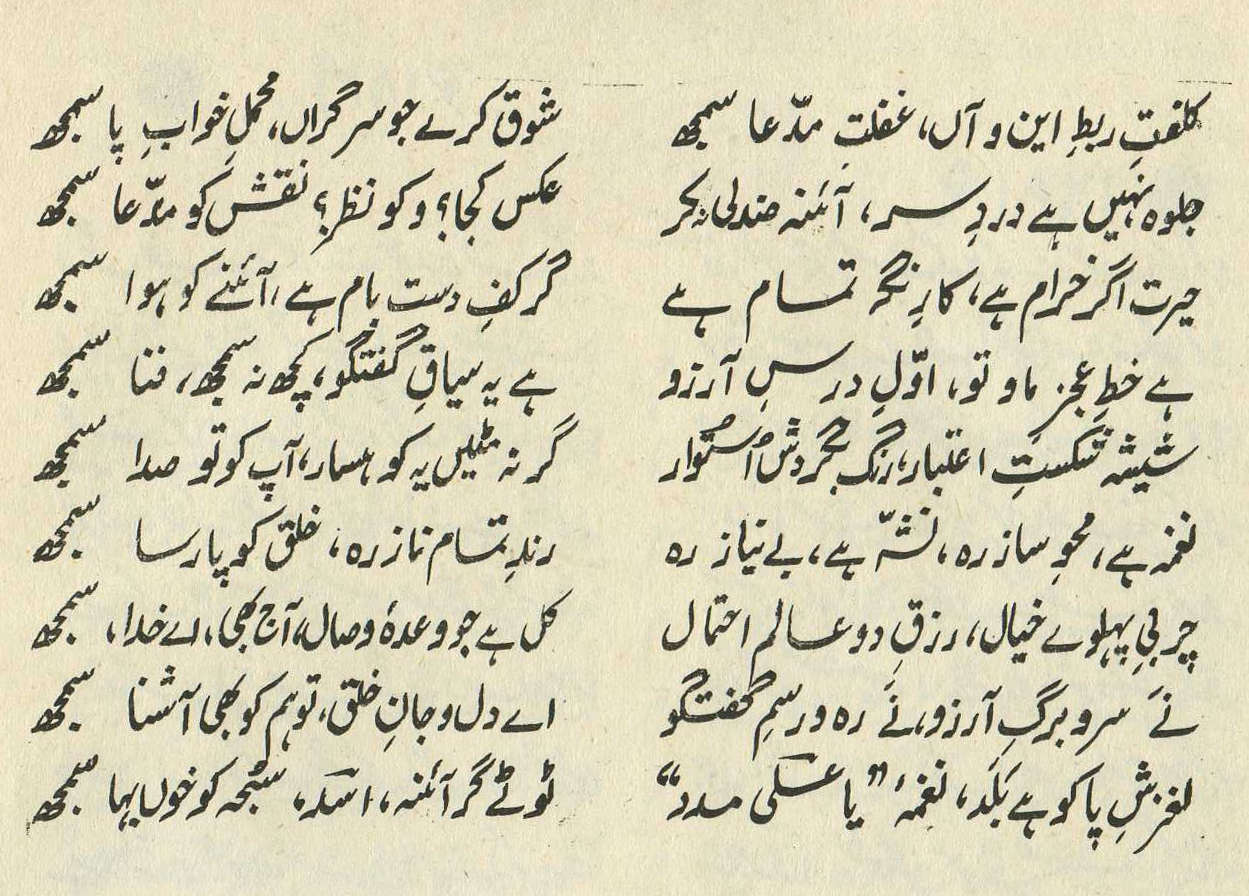 کلفتِ ربطِ این و آں، غفلتِ مدّعا سمجھ شوق کرے جو سرگراں، محملِ خوابِ پا سمجھ
جلوہ نہیں ہے دردِ سر، آئنہ صندلی نہ کر عکس کجا؟ و کو نظر؟ نقش کو مدّعا سمجھ
حیرت اگر خرام ہے، کارِ نگہ تمام ہے گر کفِ دست بام ہے، آئنے کو ہوا سمجھ
ہے خطِ عجزِ ما و تو، اوّلِ درسِ آرزو ہے یہ سیاقِ گفتگو، کچھ نہ سمجھ، فنا سمجھ
شیشہ شکستِ اعتبار، رنگ بگردش اُستوار گر نہ مٹیں یہ کوہسار، آپ کو تو صدا سمجھ
نغمہ ہے، محوِ ساز رہ، نشّہ ہے، بے نیاز رہ رندِ تمام ناز رہ، خلق کو پارسا سمجھ
چربیِ پہلوے خیال، رزقِ دو عالم احتمال کل ہے جو وعدۂ وصال، آج بھی، اے خدا، سمجھ
نَے سر و برگِ آرزو، نَے رہ و رسمِ گفتگو اے دل و جانِ خلق، تو ہم کو بھی آشنا سمجھ
لغزشِ پا کو ہے بَلَد، نغمۂ ”یا علی مدد“ ٹوٹے گر آئنہ، اسد، سُبحہ کو خوں بہا سمجھ